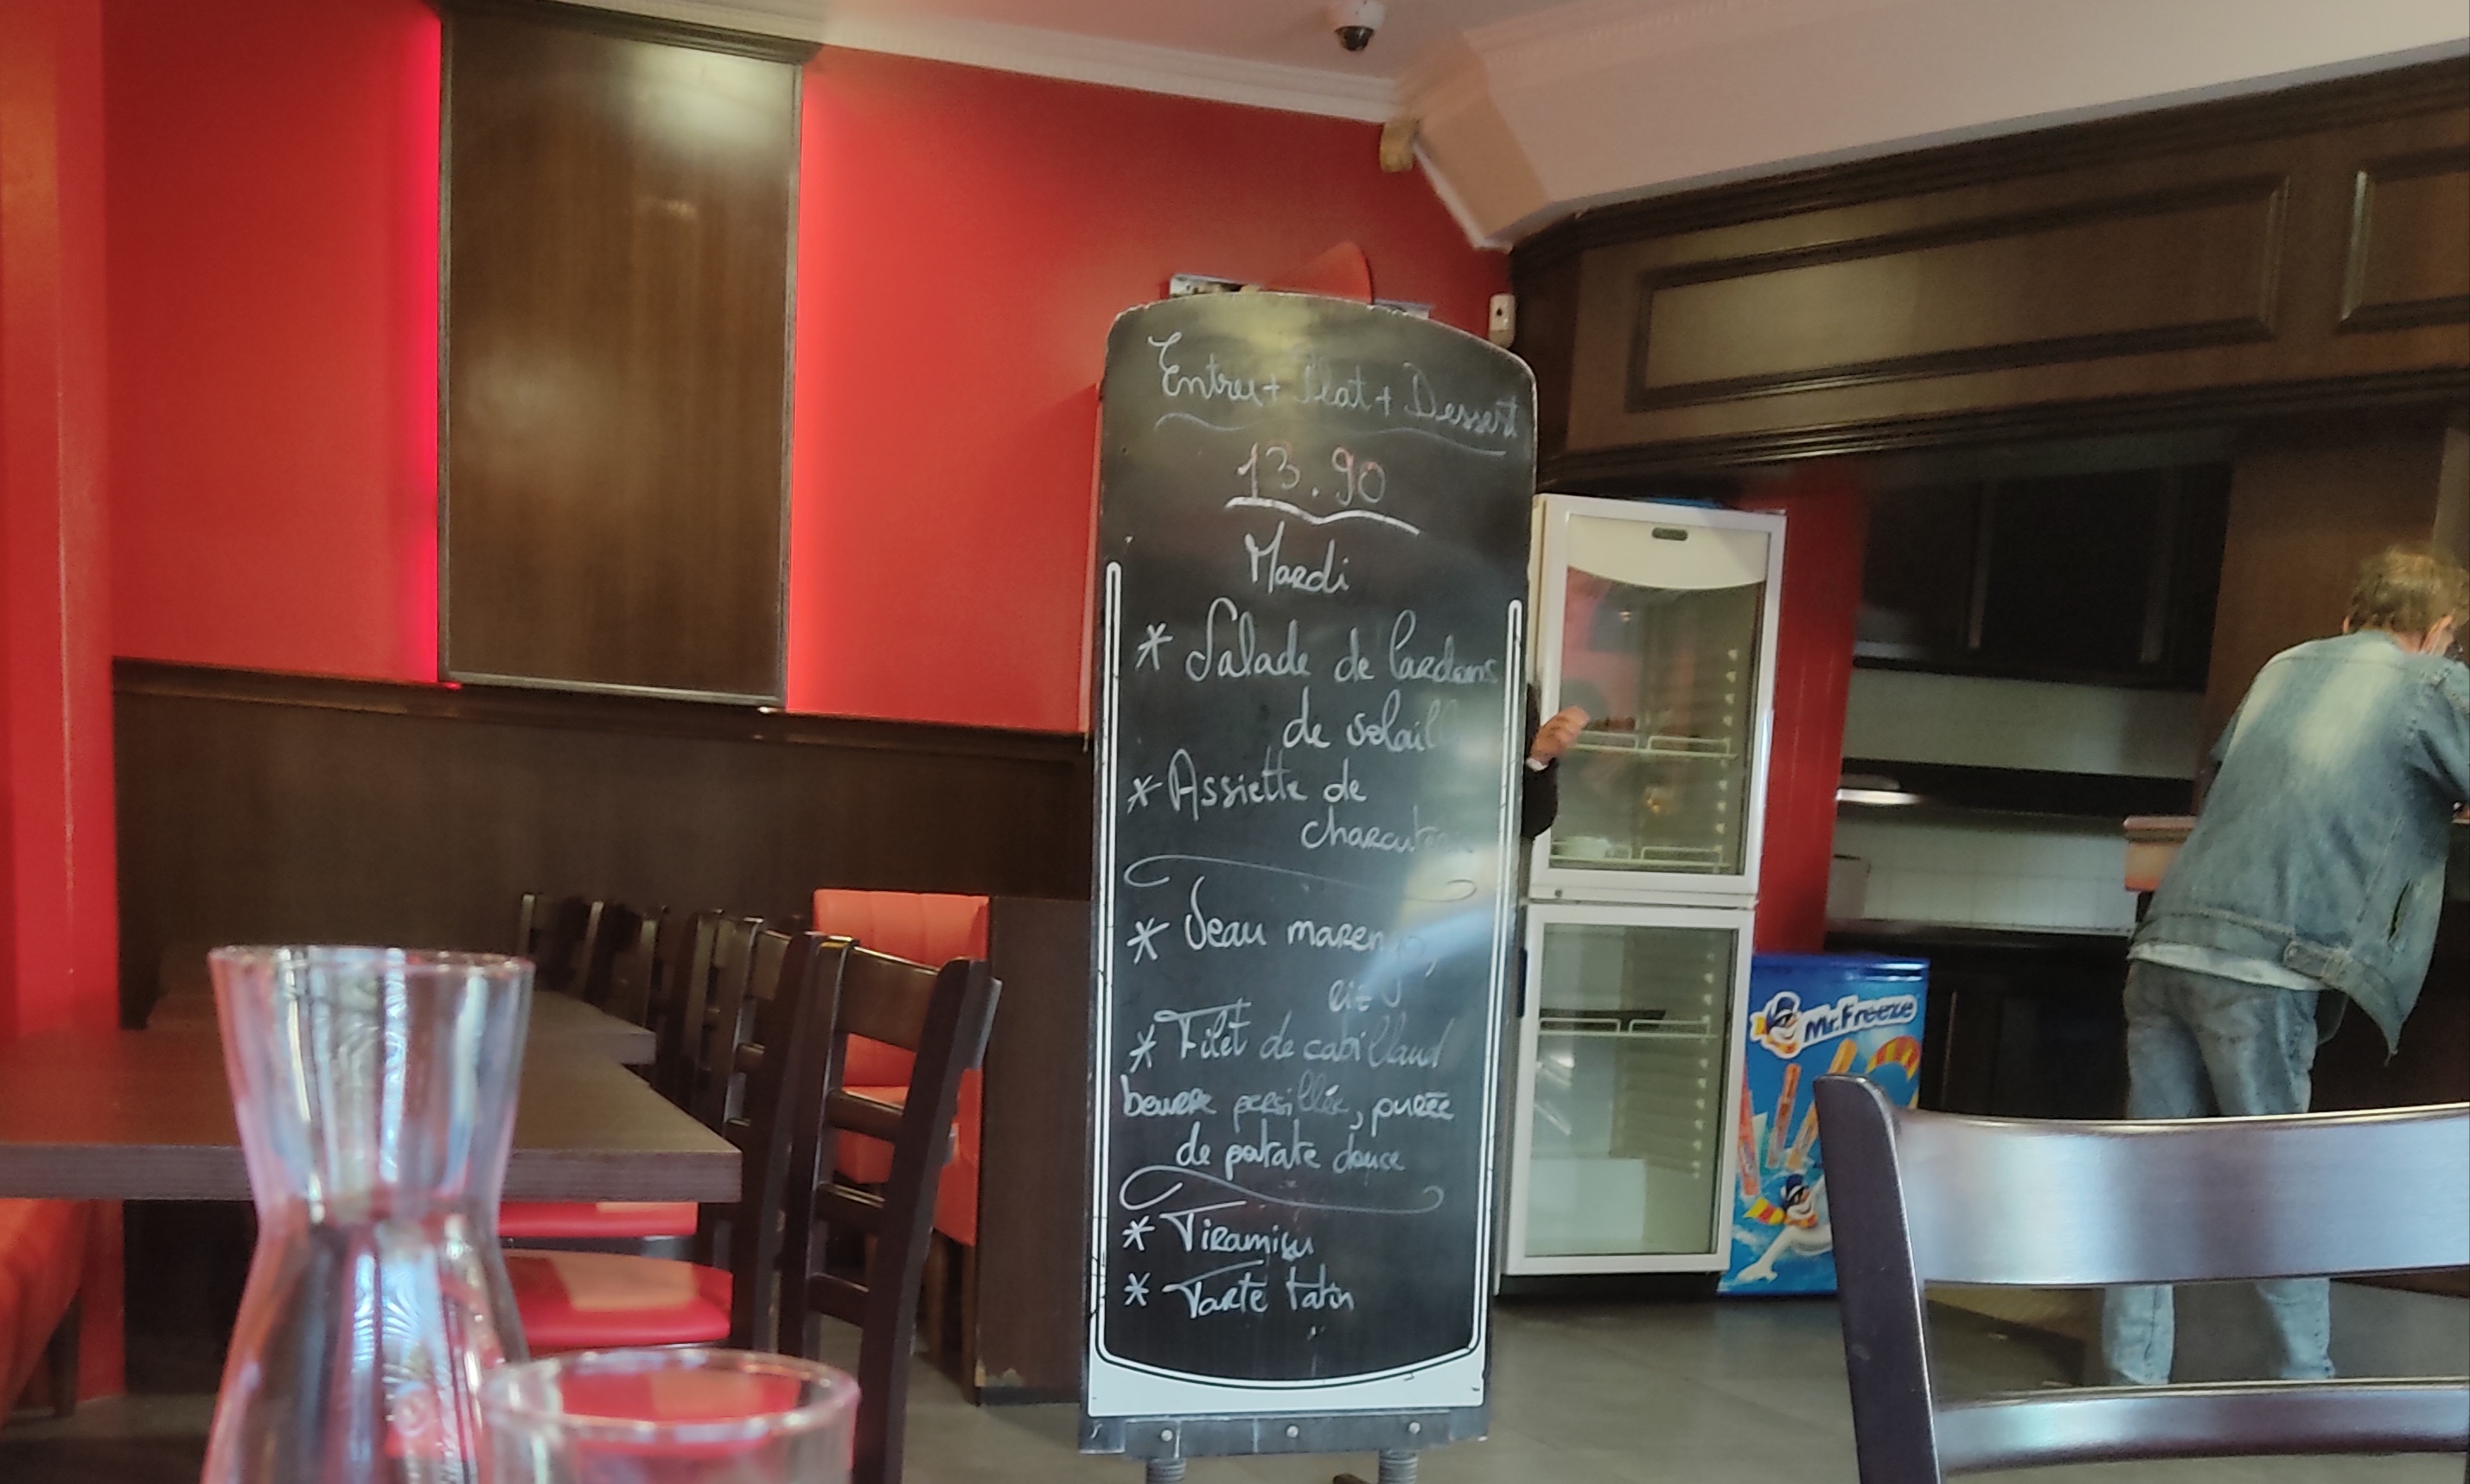 Entree + Plat + Dessert
13.90
Mardi
* Salade de lardons
de volaille
* Assiette de
charcuterie
* Veau marengo,
riz
* Filet de cabillaud
beurre persillée, purée
de patate douce
* Tiramisu
* Tarte tatin
Mr. Freeze